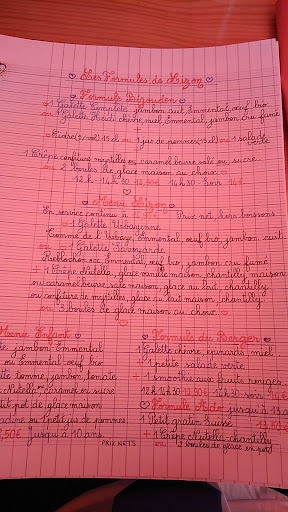 Les Formules de Lizon
Formule Bigouden
1 Galette Complète jambon cuit, Emmental, œuf bio
ou 1 Galette Heidi chèvre, miel, Emmental, jambon cru fumé
+
Cidre (1/4 vol) 25 cl ou 1 jus de pommes (25 cl) ou 1 salade verte
+
1 Crêpe confiture myrtilles ou caramel beurre salé ou sucre
ou 2 boules de glace maison au choix
12h 14h30 14h30 soir
Menu Lizon
En service continu à Prix net, hors boissons
1 Galette
Tomme de l' Emmental, œuf bio, jambon cuit
ou 1 Galette Savoyarde
Reblochon Emmental, œuf bio, jambon cru fumé
+ 1 Crêpe Nutella, glace vanille maison, chantilly maison
ou caramel beurre salé maison, glace au lait, chantilly
ou confiture de myrtilles, glace au lait maison, chantilly
ou 3 boules de glace maison au choix
Menu Enfant
jambon, Emmental
ou Emmental, œuf bio
tomme, jambon, tomate
Nutella ou caramel ou sucre
petit pot de glace maison
ou 1 petit jus de pommes
Jusqu'à 10 ans
PRIX NETS
Formule du Berger
1 Galette chèvre, épinards, miel
+ 1 petite salade verte
+ 1 smoothie aux fruits rouges
12h 14h30 14h30 soir
Formule Ado jusqu'à 15 ans
1 Petit gratin Suisse
+ 1 Crêpe Nutella chantilly
ou 2 boules de glace en pot